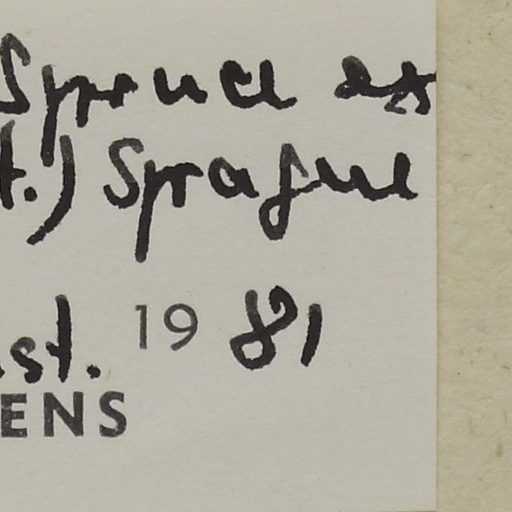 Spruce ex
t.) Sprague
st. 19 81
ENS